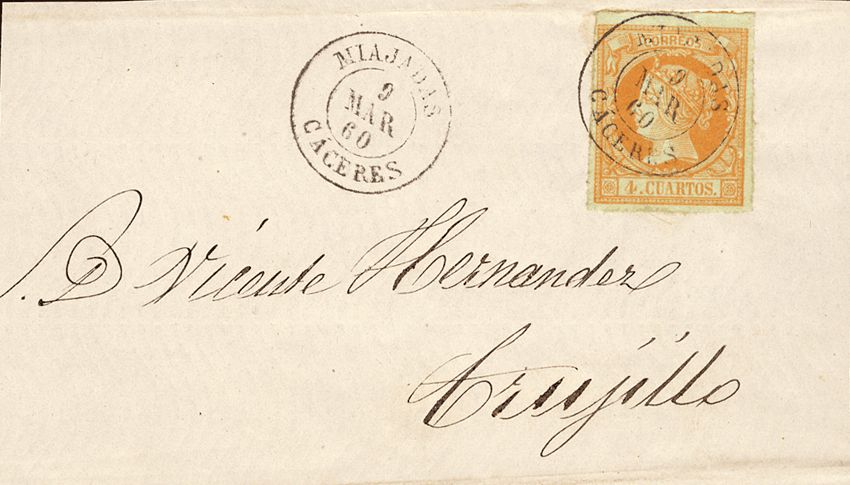 MIAJADAS
9
MAR
60
CÁCERES
CORREOS
MIAJADAS
9
MAR
60
CÁCERES
4 CUARTOS.
S. D. Vicente Hernandez
Trujillo